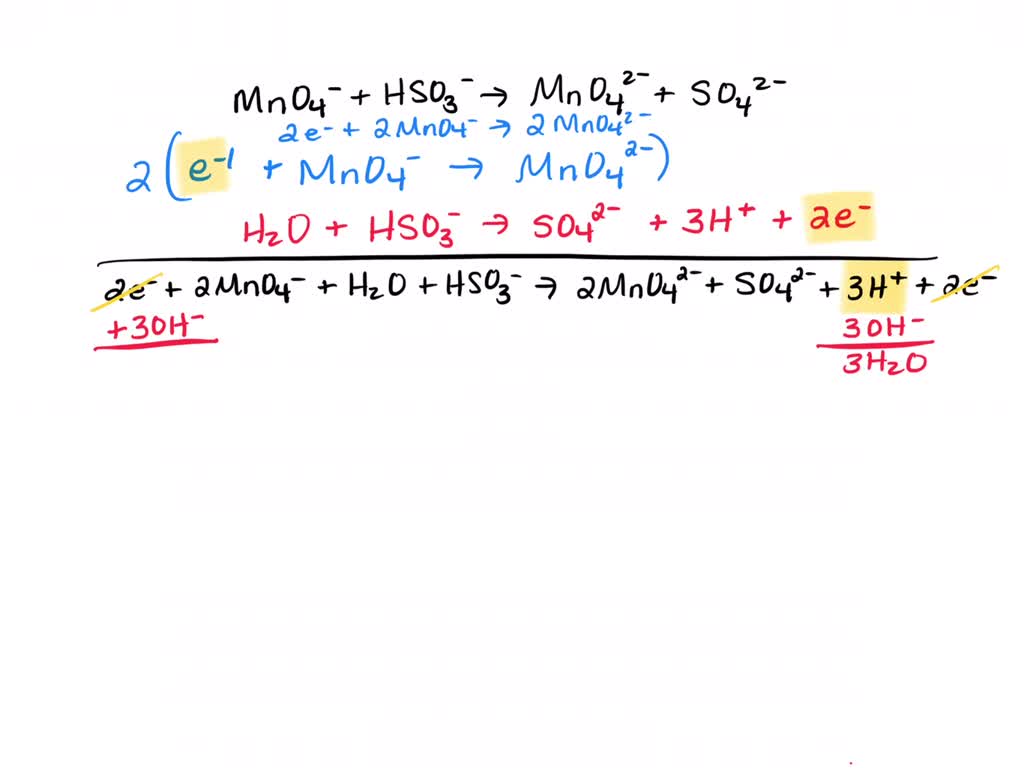 MnO₄⁻ + HSO₃⁻ → MnO₄²⁻ + SO₄²⁻
2e⁻ + 2MnO₄⁻ → 2MnO₄²⁻
2(e⁻¹ + MnO₄⁻ → MnO₄²⁻)
H₂O + HSO₃⁻ → SO₄²⁻ + 3H⁺ + 2e⁻
2e⁻ + 2MnO₄⁻ + H₂O + HSO₃⁻ → 2MnO₄²⁻ + SO₄²⁻ + 3H⁺ + 2e⁻
+3OH⁻ 3OH⁻
3H₂O